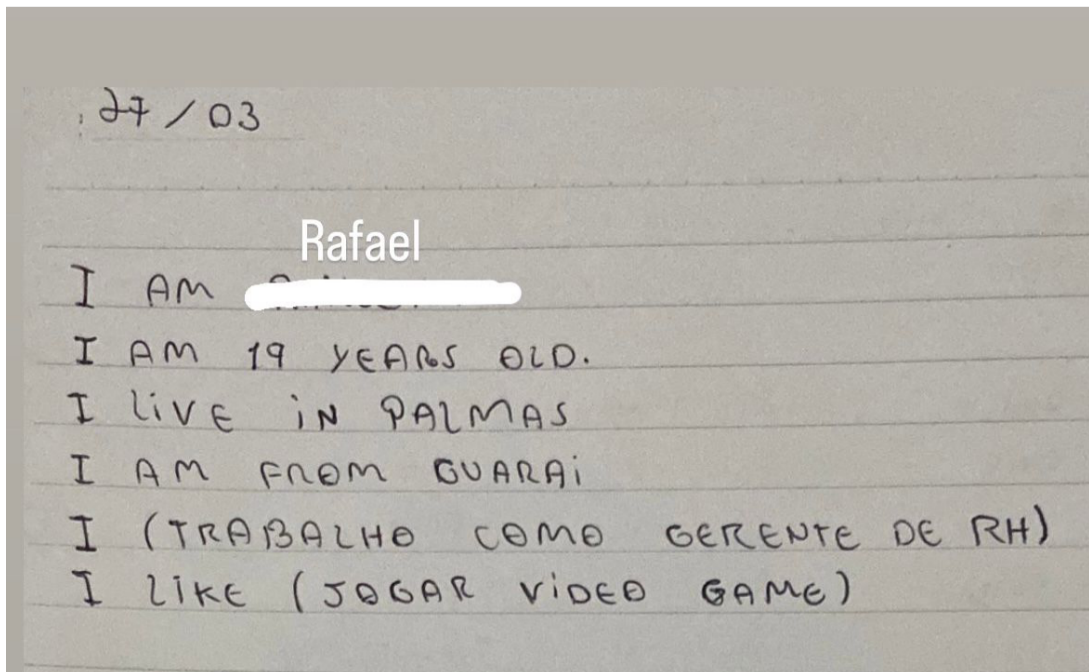 27/03
Rafael
I AM
I AM 19 YEARS OLD.
I LIVE IN PALMAS
I AM FROM GUARAI
I (TRABALHO COMO GERENTE DE RH)
I LIKE (JOGAR VIDEO GAME)